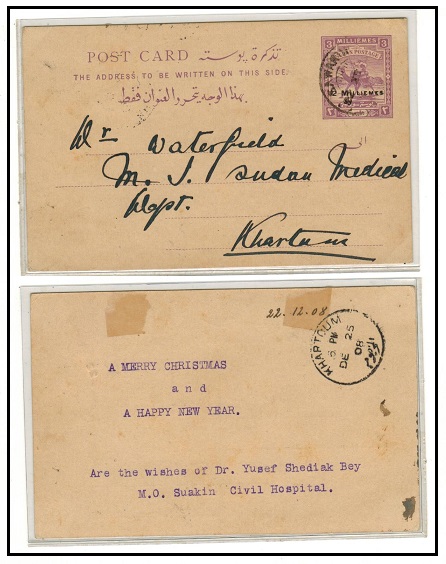 3 MILLIEMES 3
POST CARD تذكرة بوسته
THE ADDRESS TO BE WRITTEN ON THIS SIDE.
بهذا الوجه يتحرر العنوان فقط
POSTAGE
2 MILLIEMES
الى
Dr Waterfield
M. I. Sudan Medical
Dept.
Khartum
22.12.08
KHARTOUM
PM
DE 25
08
A MERRY CHRISTMAS
and
A HAPPY NEW YEAR.
Are the wishes of Dr. Yusef Shediak Bey
M.O. Suakin Civil Hospital.